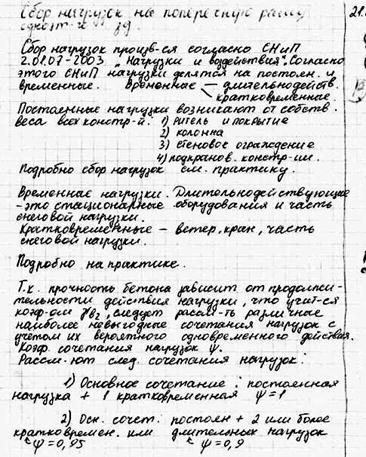 Сбор нагрузок на поперечную раму
одноэт-го зд.
Сбор нагрузок произв-ся согласно СНиП
2.01.07-2003 „Нагрузки и воздействия". Согласно
этого СНиП нагрузки делятся на постоян. и
временные. Временные — длительнодейств.
кратковременные
Постоянные нагрузки возникают от собств.
веса всех констр-й. 1) ригель и покрытие
2) колонна
3) стеновое ограждение
4) подкранов. констр-ии.
Подробно сбор нагрузок см. практику.
Временная нагрузки. Длительнодействующие
- это стационарные оборудования и часть
снеговой нагрузки.
Кратковременные – ветер, кран, часть
снеговой нагрузки.
Подробно на практике.
Т.к. прочность бетона зависит от продолжи-
тельности действия нагрузки, что учит-ся
коэф-ом γb2, следует рассм-ть различные
наиболее невыгодные сочетания нагрузок с
учетом их вероятного одновременного действия.
Коэф. сочетания нагрузок ψ.
Рассм-ют след. сочетания нагрузок:
1) Основное сочетание: постоянная
нагрузка + 1 кратковременная ψ=1
2) Осн. сочет.: постоян + 2 или более
кратковремен. или длительных нагрузок
ψ=0,95 ψ=0,9
21.